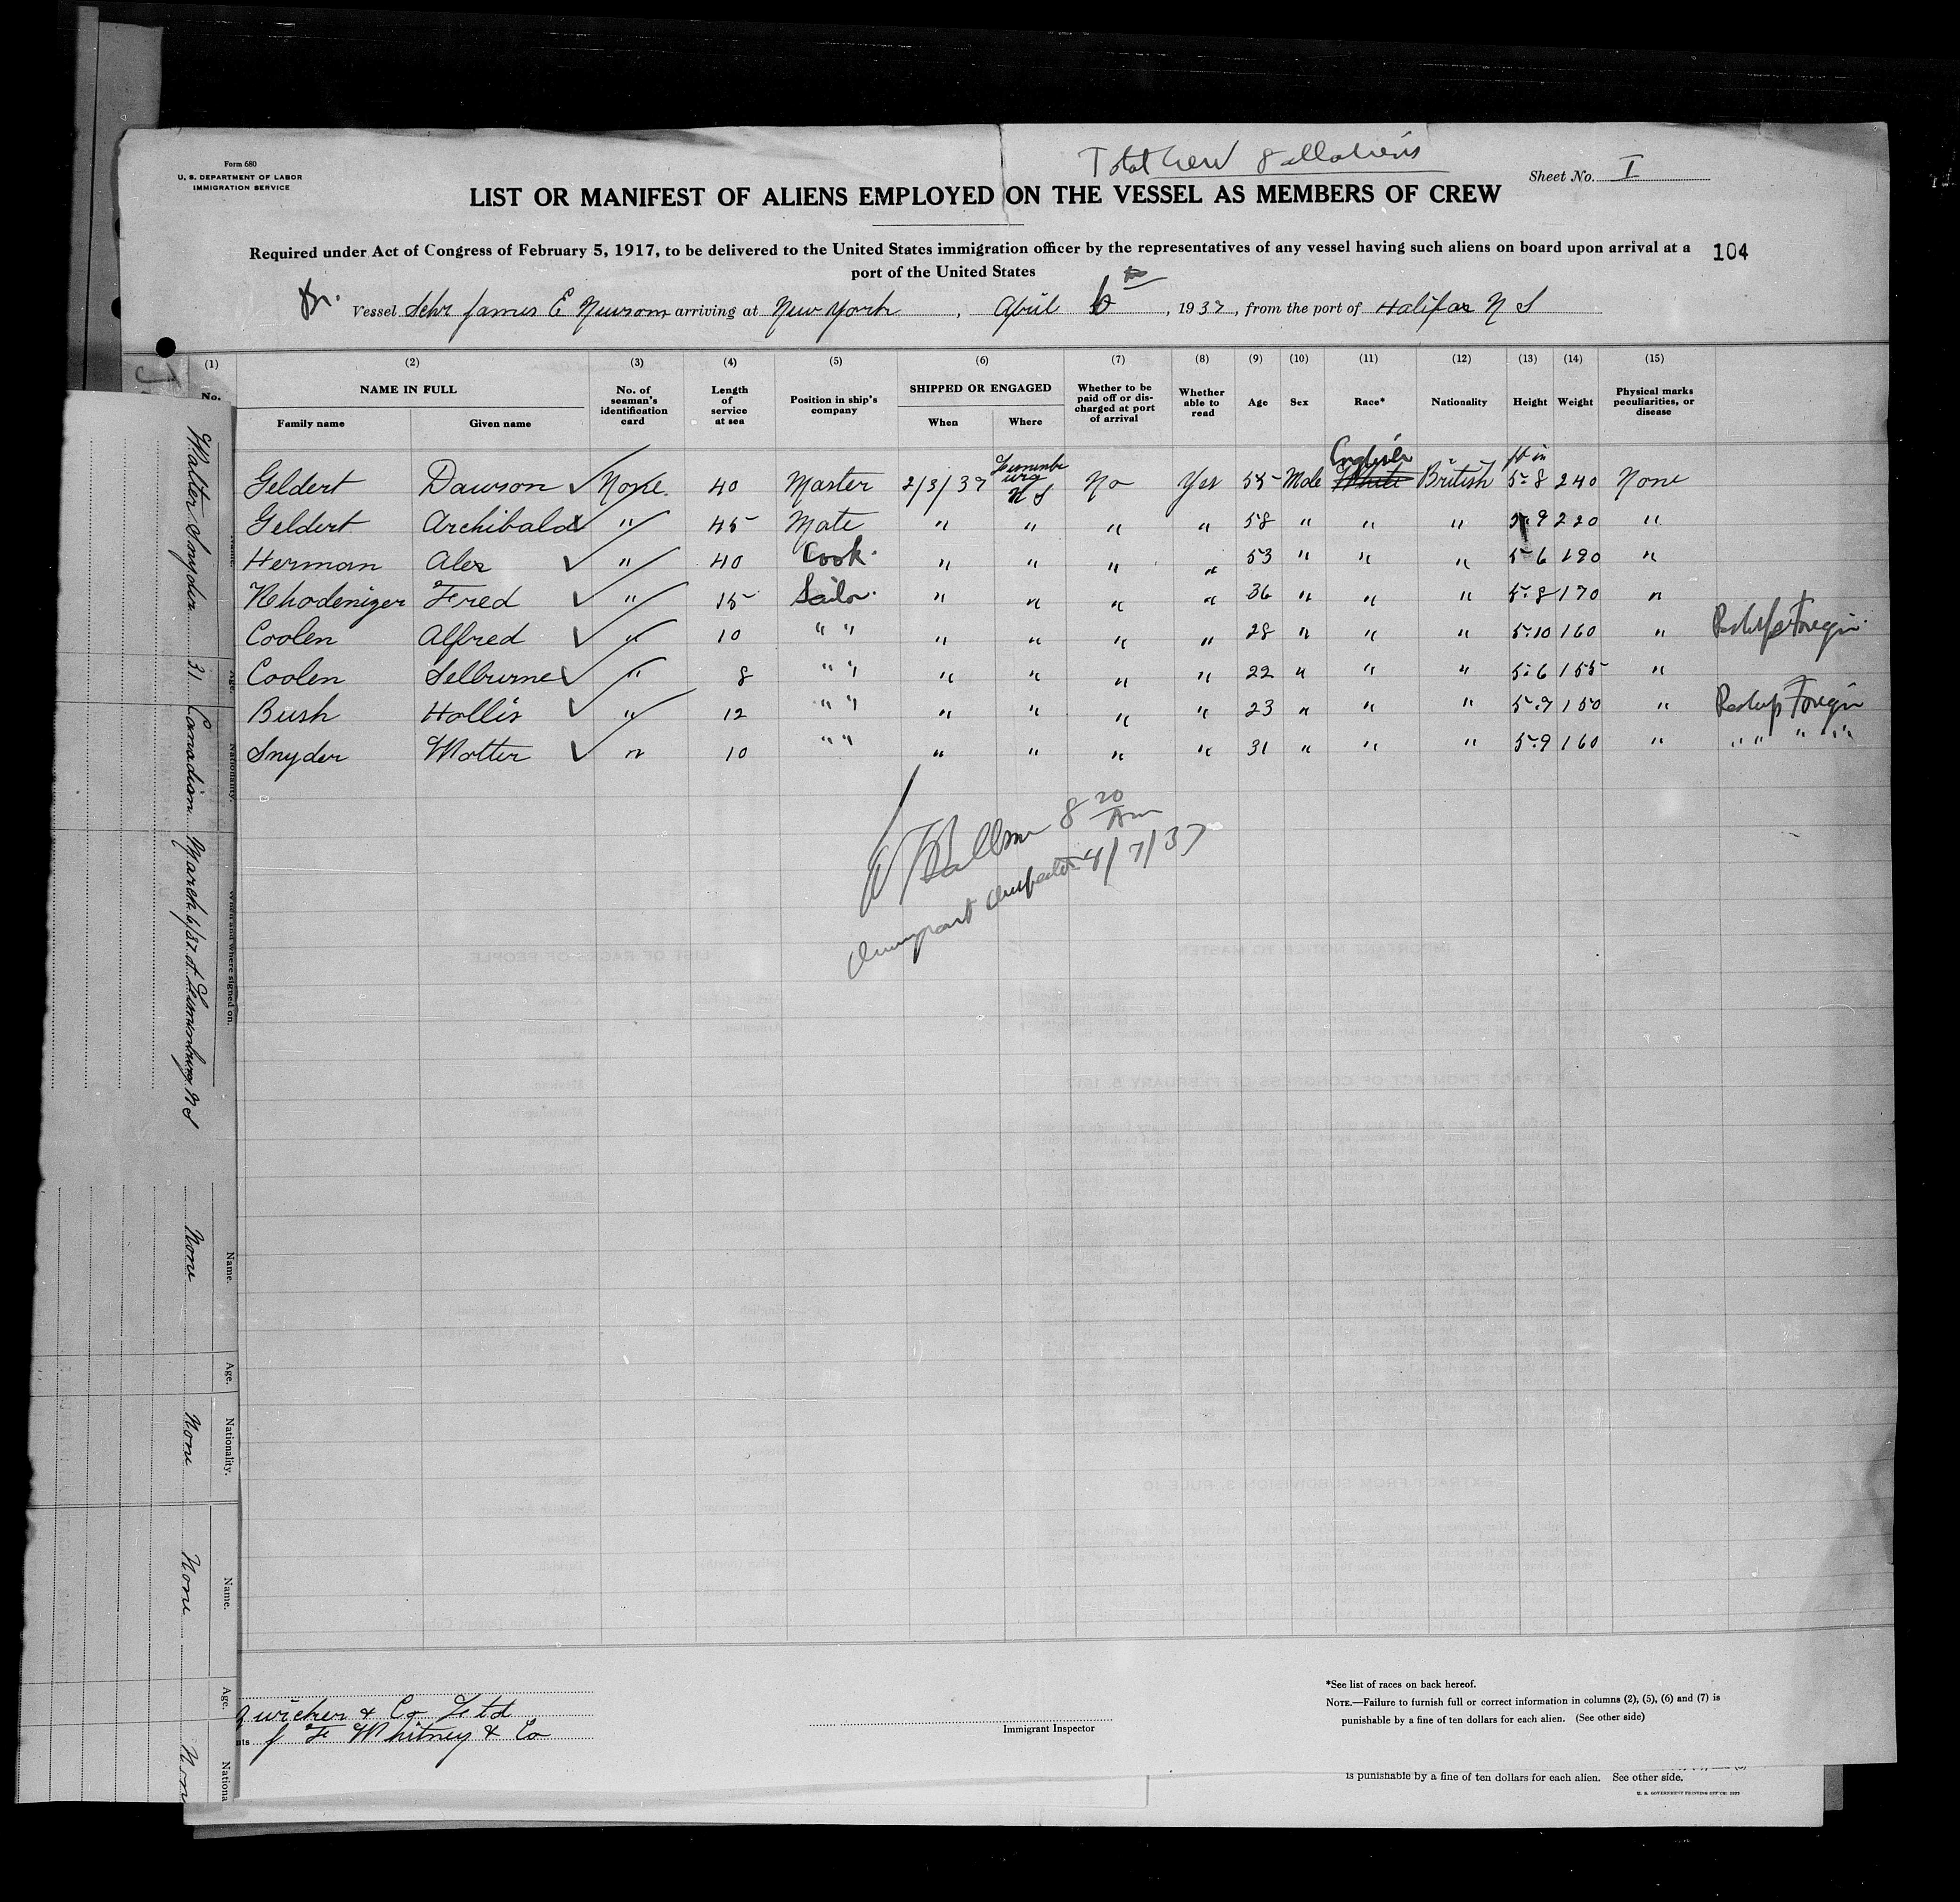 Form 680
U. S. DEPARTMENT OF LABOR
IMMIGRATION SERVICE
Total Crew 8 all aliens
Sheet No. I
LIST OR MANIFEST OF ALIENS EMPLOYED ON THE VESSEL AS MEMBERS OF CREW
Required under Act of Congress of February 5, 1917, to be delivered to the United States immigration officer by the representatives of any vessel having such aliens on board upon arrival at a
port of the United States
104
Br. Vessel Schr James E Newsom arriving at New York, April 6th, 1937, from the port of Halifax N S
(1) (2) (3) (4) (5) (6) (7) (8) (9) (10) (11) (12) (13) (14) (15)
No. NAME IN FULL Family name Given name No. of seaman's identification card Length of service at sea Position in ship's company SHIPPED OR ENGAGED When Where Whether to be paid off or discharged at port of arrival Whether able to read Age Sex Race* Nationality Height Weight Physical marks peculiarities, or disease
English ft in
Geldert Dawson None 40 Master 2/3/37 Lunenburg N S No Yes 55 Male White British 5-8 240 None
Geldert Archibald " 45 Mate " " " " 58 " " " 5-9 220 "
Herman Alex " 40 Cook " " " " 53 " " " 5-6 190 "
Rhodenizer Fred " 15 Sailor " " " " 36 " " " 5-8 170 "
Coolen Alfred " 10 " " " " " " 28 " " " 5-10 160 " Reshps Foregin
Coolen Selburne " 8 " " " " " " 22 " " " 5-6 155 "
Bush Hollis " 12 " " " " " " 23 " " " 5-9 150 " Reshps Foregin
Snyder Walter " 10 " " " " " " 31 " " " 5-9 160 " " " " " "
8 20 Am
Immigrant Inspector 4/7/37
Walter Snyder 31 Canadian March 6/37 at Lunenburg N S
Name. Age. Nationality. When and where signed on.
None None None
Name. Age. Nationality. Name. Age.
Zwicker & Co Ltd
J F Whitney & Co
Immigrant Inspector
*See list of races on back hereof.
NOTE.—Failure to furnish full or correct information in columns (2), (5), (6) and (7) is
punishable by a fine of ten dollars for each alien. (See other side)
is punishable by a fine of ten dollars for each alien. See other side.
U. S. GOVERNMENT PRINTING OFFICE